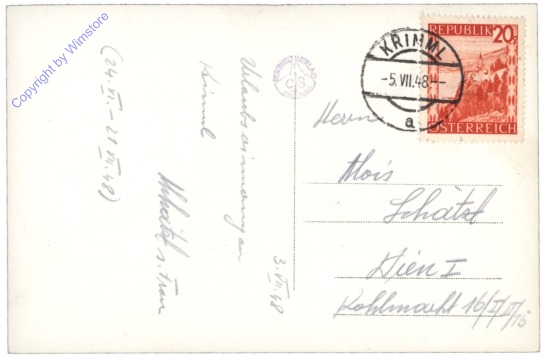 Copyright by Wimstore
(24. VI. – 21. VII. 48)
Urlaubserinnerung an
Krimml
ASchätzl s. Frau
3. VII. 48
KRIMML
-5.VII.48.--
a
REPUBLIK
20g
ÖSTERREICH
Herrn
Alois
Schätzl
Wien I
Kohlmarkt 16/I/II/15